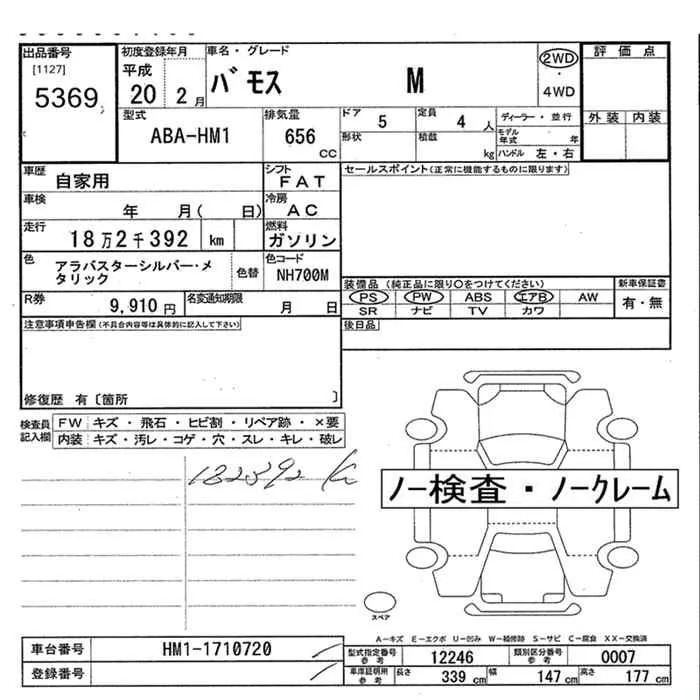 出品番号 初度登録年月 車名・グレード 2WD 評価点
[1127] 平成
5369 20 2月 バモス M ・ 4WD
型式 排気量 ドア 5 定員 4人 ディーラー・並行 外装 内装
ABA-HM1 656 CC 形状 積載 kg モデル年式 年
ハンドル 左・右
車歴 自家用 シフト FAT セールスポイント(正常に機能するものに限ります)
車検 年 月( 日) 冷房 AC
走行 18万2千392 km 燃料 ガソリン
色 アラバスターシルバー・メタリック 色替 色コード NH700M
装備品(純正品に限り○をつけてください) 新車保証書
R券 9,910円 名変通知期限 月 日 PS PW ABS エアB AW 有・無
SR ナビ TV カワ
注意事項申告欄(不具合内容等は具体的に記入して下さい) 後日品
修復歴 有〔箇所 〕
検査員記入欄 FW キズ・飛石・ヒビ割・リペア跡・×要
内装 キズ・汚レ・コゲ・穴・スレ・キレ・破レ
182392 K
ノー検査・ノークレーム
スペア
A-キズ E-エクボ U-凹み W-補修跡 S-サビ C-腐食 XX-交換済
車台番号 HM1-1710720 型式指定番号 参考 12246 類別区分番号 参考 0007
登録番号 車庫証明用 参考 長さ 339 cm 幅 147 cm 高さ 177 cm